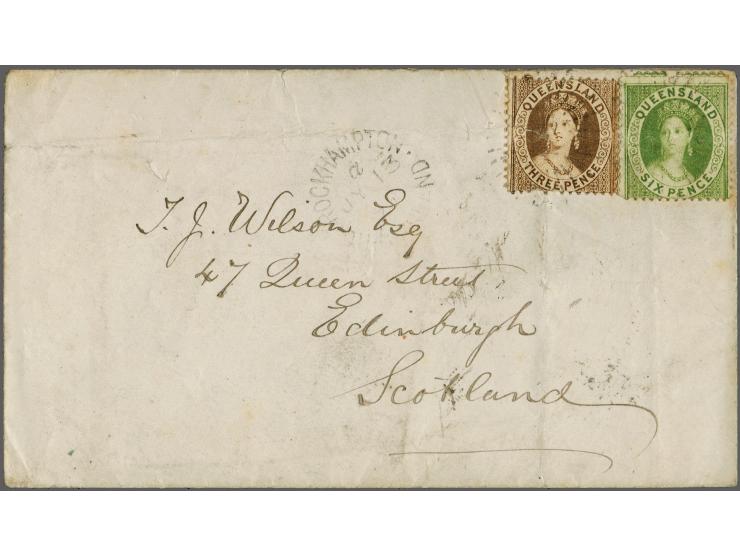 QUEENSLAND
THREE PENCE
QUEENSLAND
SIX PENCE
ROCKHAMPTON
T. J. Wilson Esq
47 Queen Street
Edinburgh
Scotland